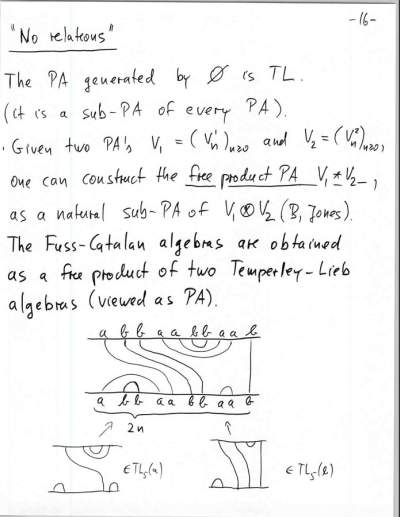 -16-
"No relations"
The PA generated by ∅ is TL.
(it is a sub-PA of every PA).
. Given two PA's V₁ = (Vₙ¹)ₙ≥₀ and V₂ = (Vₙ²)ₙ≥₀,
one can construct the free product PA V₁ * V₂,
as a natural sub-PA of V₁ ⊗ V₂ (B, Jones).
The Fuss-Catalan algebras are obtained
as a free product of two Temperley-Lieb
algebras (viewed as PA).
a b b a a b b a a b
a b b a a b b a a b
2n
∈ TL₅(a)
∈ TL₅(b)